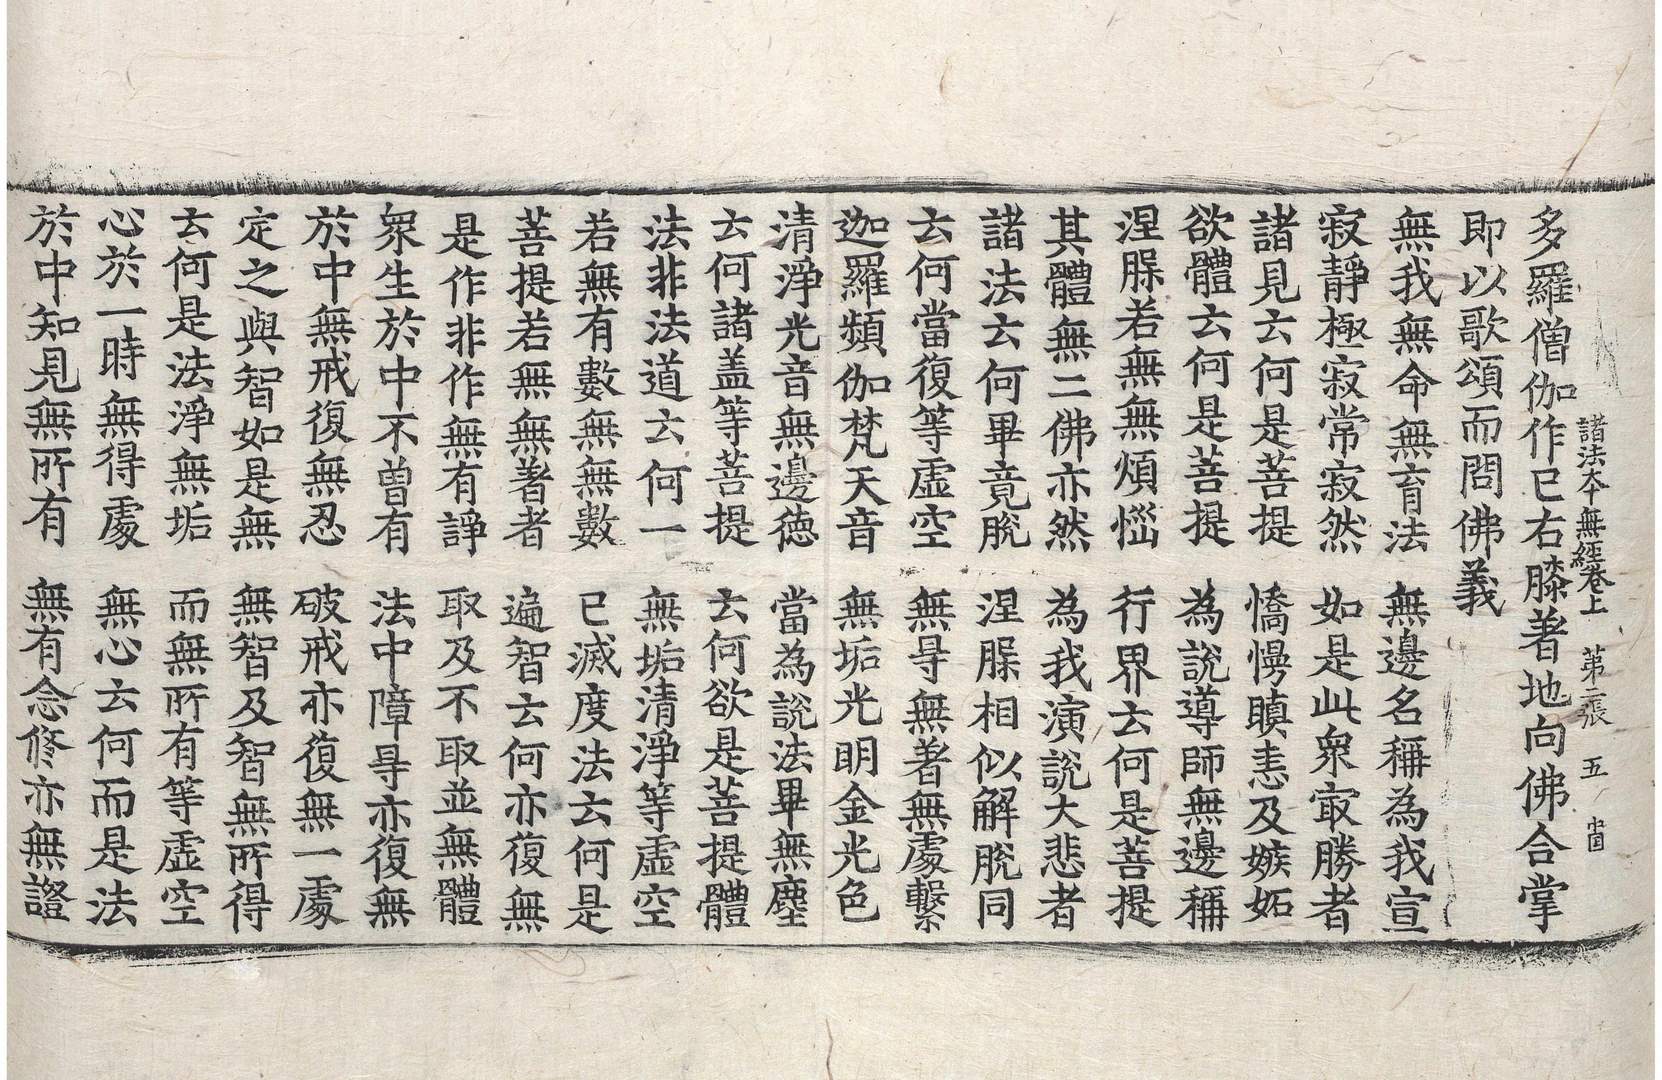 諸法本無經卷上 第二張 五
多羅僧伽作已右膝著地向佛合掌
即以歌頌而問佛義
無我無命無育法 無邊名稱為我宣
寂靜極寂常寂然 如是此眾㝡勝者
諸見云何是菩提 憍慢瞋恚及嫉妬
欲體云何是菩提 為說導師無邊稱
涅槃若無無煩惱 行界云何是菩提
其體無二佛亦然 為我演說大悲者
諸法云何畢竟脫 涅槃相似解脫同
云何當復等虛空 無㝵無著無處繫
迦羅頻伽梵天音 無垢光明金光色
清淨光音無邊德 當為說法畢無塵
云何諸盖等菩提 云何欲是菩提體
法非法道云何一 無垢清淨等虛空
若無有數無無數 已滅度法云何是
菩提若無無著者 遍智云何亦復無
是作非作無有諍 取及不取並無體
眾生於中不曾有 法中障㝵亦復無
於中無戒復無忍 破戒亦復無一處
定之與智如是無 無智及智無所得
云何是法淨無垢 而無所有等虛空
心於一時無得處 無心云何而是法
於中知見無所有 無有念修亦無證